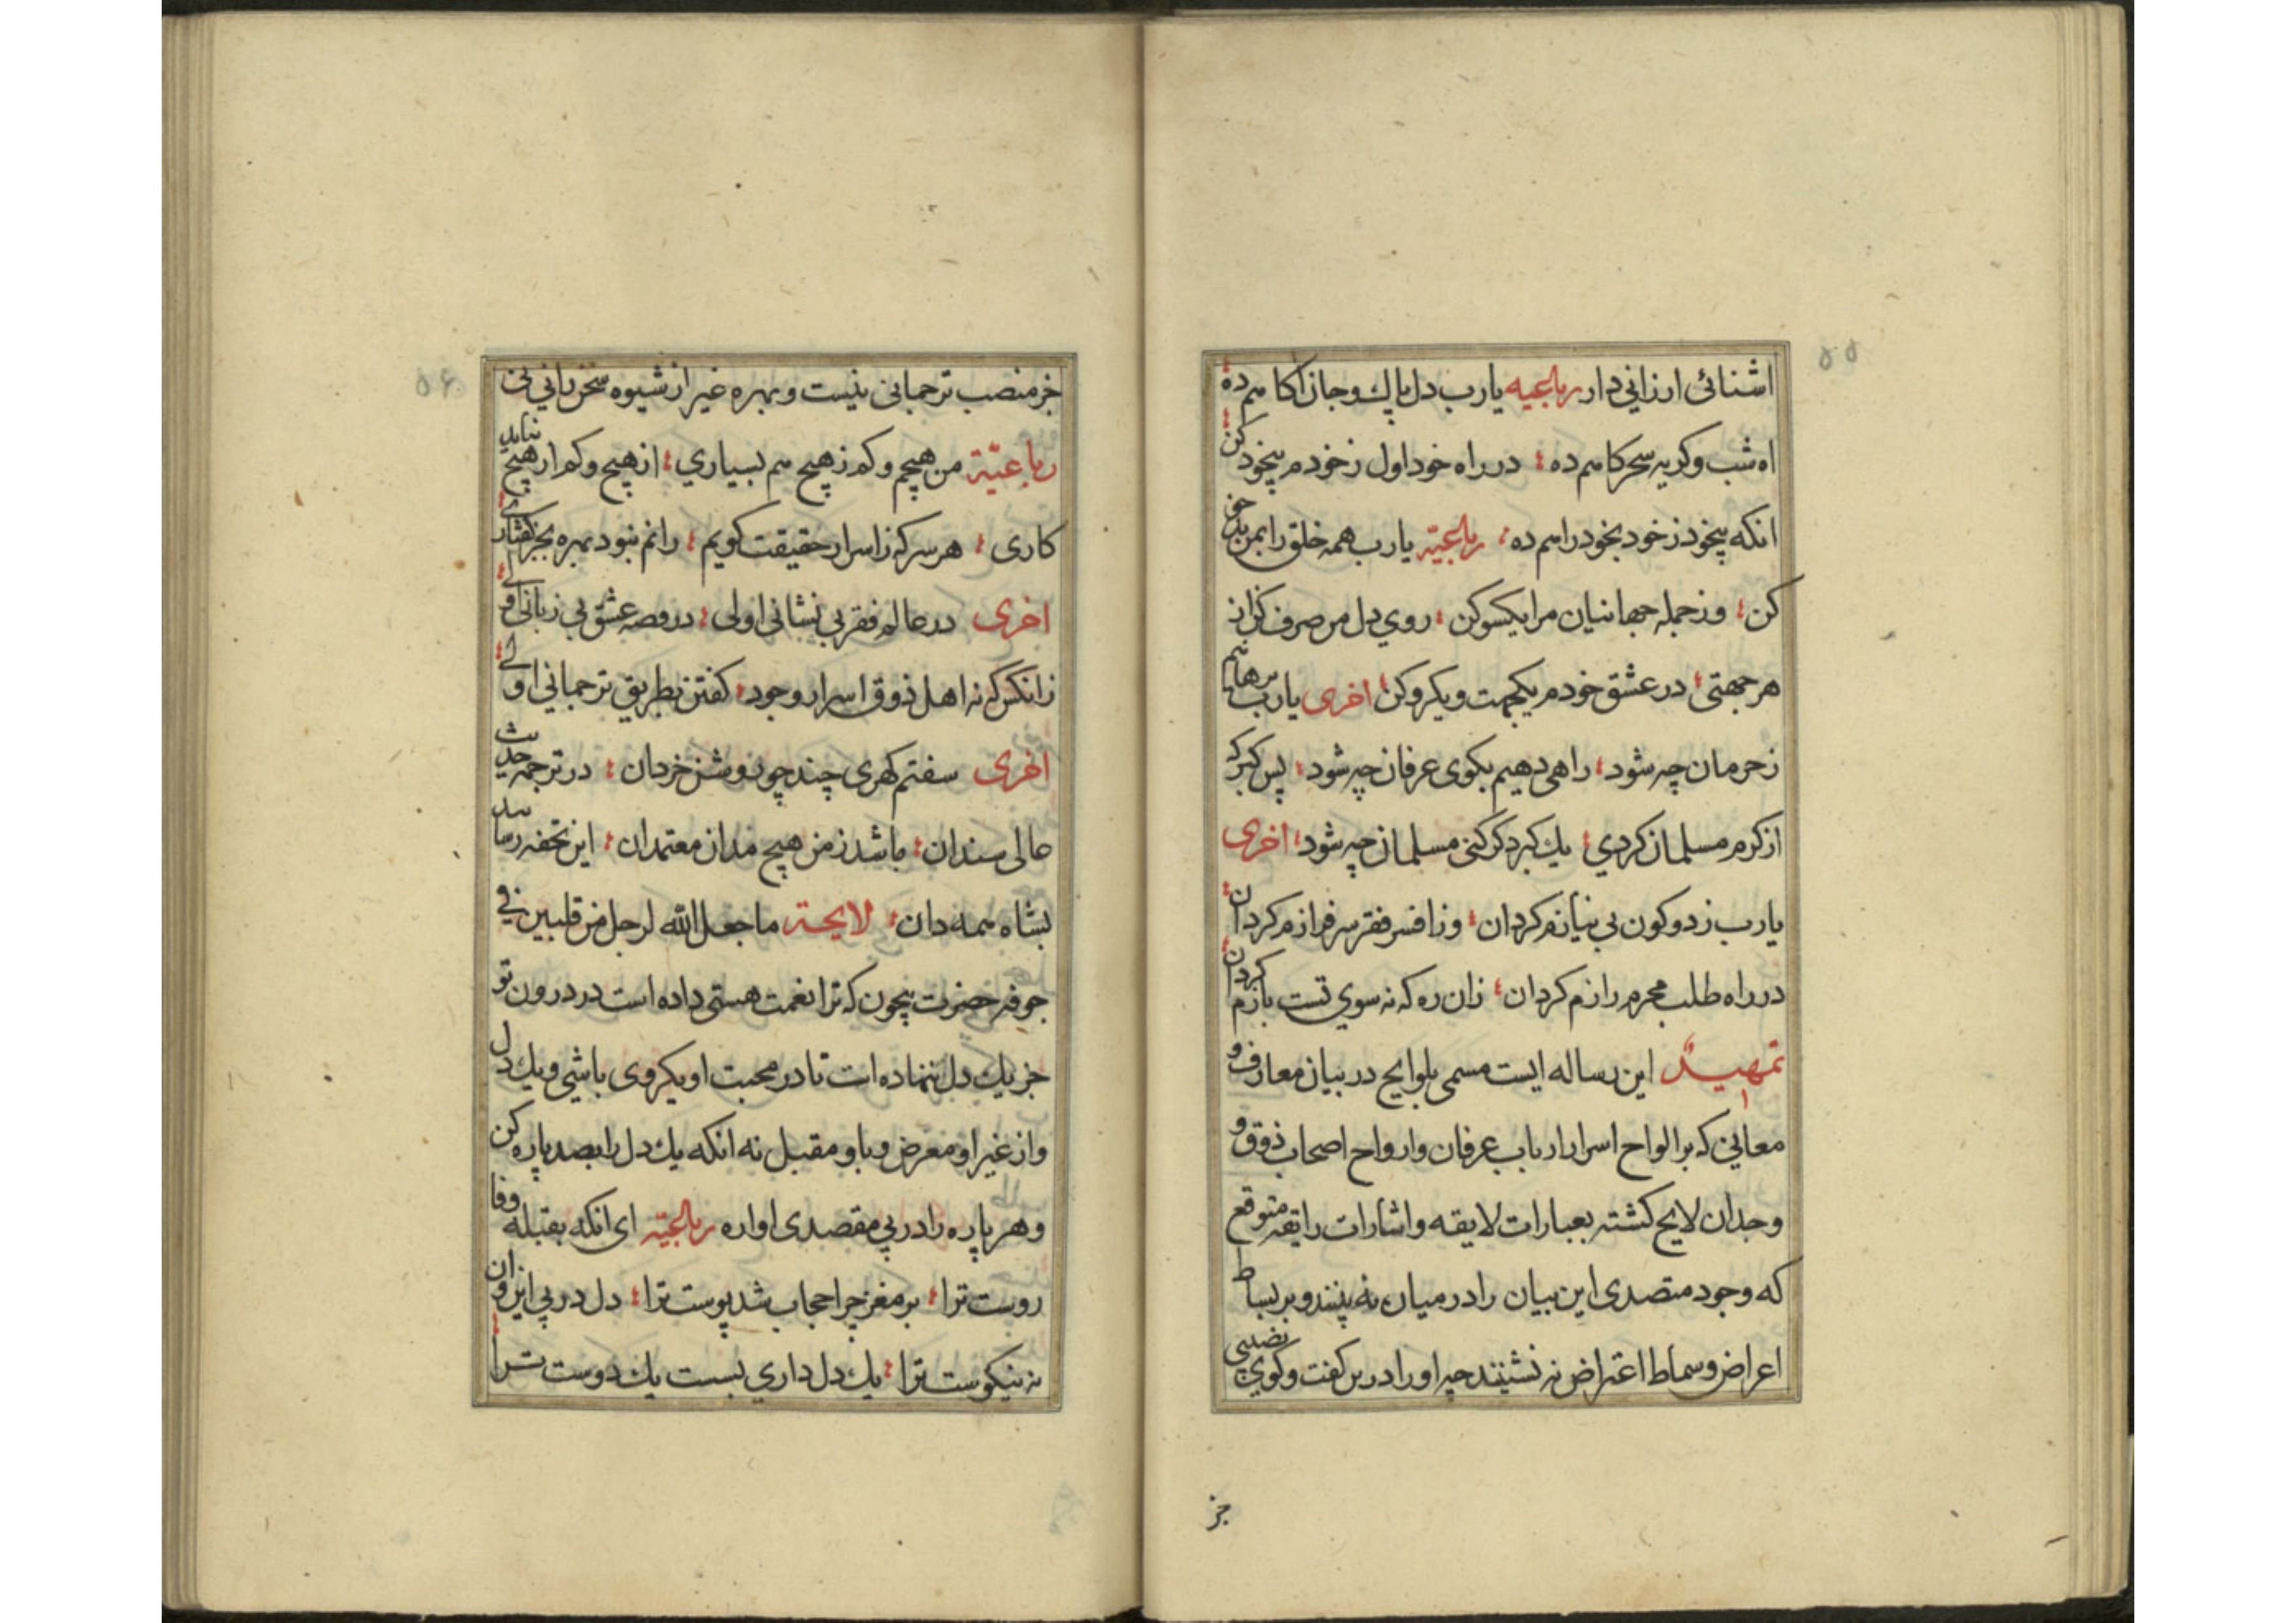 اشنائی ارزانی دار رباعیه یارب دل پاك و جان اکاهم ده
اه شب و کریه سحرکاهم ده در راه خود اول ز خودم بیخود کن
انکه بیخود ز خود بخود راهم ده رباعیّه یارب همه خلق را بمن بدخو
کن وز جمله جهانیان مرا یکسو کن روی دل من صرف کن از
هر جهتی در عشق خودم یکجهت و یکرو کن اخری یارب برهانیم
ز حرمان چه شود راهی دهیم بکوی عرفان چه شود بس کبر که
از کرم مسلمان کردی یك کبر دکر کنی مسلمان چه شود اخری
یارب ز دو کون بی نیازم کردان وز افسر فقر سرفرازم کردان
در راه طلب محرم رازم کردان زان ره که نه سوی تست بازم کردان
تمهیدٌ این رساله ایست مسمی بلوایح در بیان معارف و
معانی که بر الواح اسرار ارباب عرفان و ارواح اصحاب ذوق و
وجدان لایح کشته بعبارات لایقه و اشارات رایقه متوقع
که وجود متصدی این بیان را در میان نه بینند و بر بساط
اعراض و سماط اعتراض نه نشینند چه او را درین کفت و کوی نصیبی
جز
۵۵
جز منصب ترجمانی نیست و بهره غیر از شیوه سخن رانی نی
رباعیّة من هیچم و کم ز هیچ هم بسیاری از هیچ و کم از هیچ نیاید
کاری هر سر که ز اسرار حقیقت کویم زانم نبود بهره بجز کفتاری
اخری در عالم فقر بی نشانی اولی در قصه عشق بی زبانی اولی
زانکس که نه اهل ذوق اسرار وجود کفتن بطریق ترجمانی اولی
اخری سفتم کهری چند چو روشن خردان در ترجمه حدیث
عالی سندان باشد ز من هیچ مدان معتمدان این تحفه رسانید
بشاه همه دان لایحة ما جعل الله لرجل من قلبین فی
جوفه حضرت بیچون که ترا نعمت هستی داده است در درون تو
جز یك دل ننهاده است تا در محبت او یکروی باشی و یك دل
و از غیر او معرض و باو مقبل نه انکه یك دل را بصد پاره کن
و هر پاره را در پی مقصدی اواره رباعیّه ای انکه بقبله وفا
روست ترا بر مغز چرا حجاب شد پوست ترا دل در پی این و ان
نه نیکوست ترا یك دل داری بست یك دوست ترا
۵۶